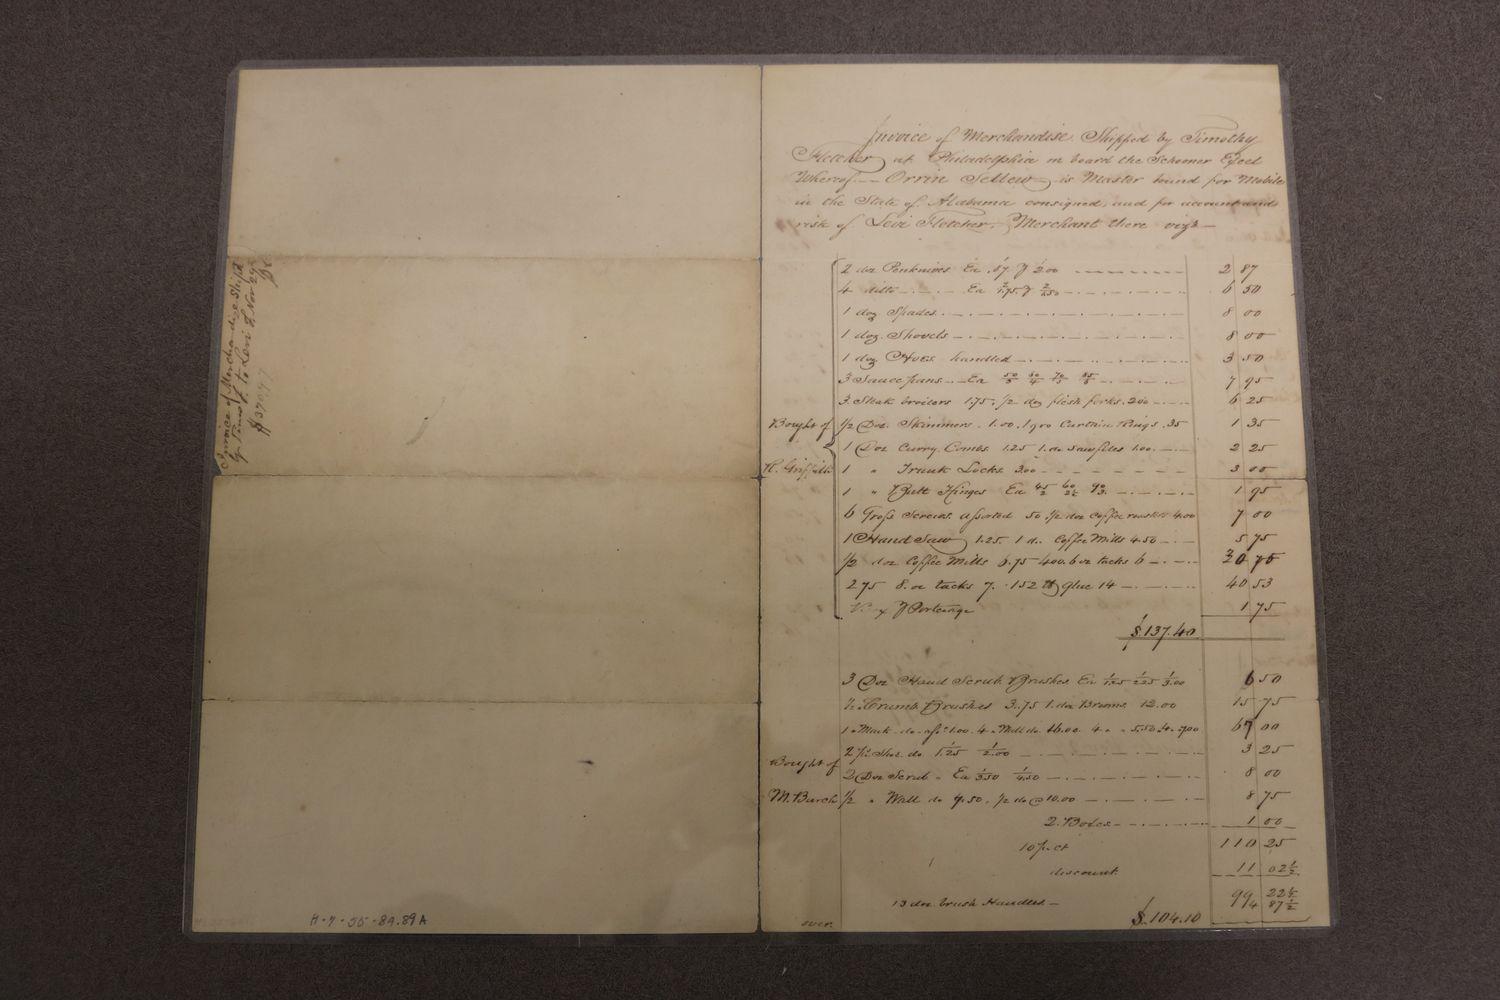 Invoice of Merchandise Shipped by Timothy
Fletcher at Philadelphia on board the Schooner
Whereof — Orrin Sellew is Master bound for Mobile
in the State of Alabama consigned and for account and
risk of Levi Fletcher. Merchant there viz —
2 doz Penknives Ea 2.00 2 87
4 ditto Ea 6 50
1 doz Spades 8 00
1 doz Shovels 8 00
1 doz Hoes handled 3 50
3 Sauce pans Ea 50/3 60/4 70/5 85/6 7 95
3 Steak broilers 1.75. 1/2 doz flesh forks. 2.00 6 25
Bought of
1/2 Doz. Skimmers. 1.00. 1 gro Curtain Rings .35 1 35
1 Doz Curry Combs 1.25 1 do Sawfiles 1.00 2 25
H. Griffith
1 " Trunk Locks 3.00 3 00
1 " Butt Hinges Ea 45/2 60/2½ 90/3 1 95
6 Gross Screws assorted 50 1/2 doz Coffee roasters 4.00 7 00
1 Hand Saw 1.25 1 do Coffee Mills 4.50 5 75
1/2 doz Coffee Mills 6.75 400. 6 oz tacks 6 30 75
275 8. oz tacks 7. 152 ℔ glue 14 40 53
& Porterage 1 75
$.137.40
3 Doz Hand Scrub Brushes Ea 1/1.25 1/2.25 1/3.00 6 50
Crumb Brushes 3.75 1. doz Brooms 12.00 15 75
67 00
2 Shoe do 1/1.25 1/2.00 3 25
Bought of
2 Doz Scrub " Ea 1/3.50 1/4.50 8 00
M. Burch
1/2 " Wall do 7.50. 1/2 do @ 10.00 8 75
2. Boxes 1 00
10 p. ct 110 25
discount 11 02½
99 22½
13 doz brush Handles — 4 87½
$.104.10
over.
Invoice of Merchandize Ship'd
by Timo F. to Levi F. Nov 29th
$370.97
H-7-55-84.89A